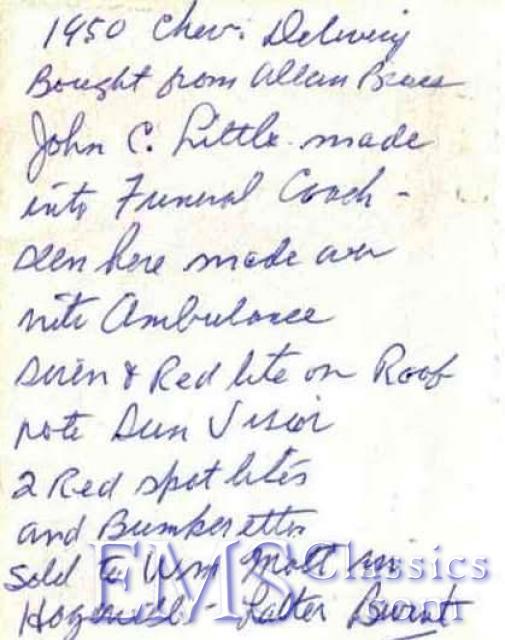 1950 Chev. Delivery
Bought from Allan
John C. Little made
into Funeral Coach -
seen here made over
into Ambulance
Siren & Red lite on Roof
note Sun Visor
2 Red spot lites
and Bumperettes
Sold to Wm Mott in
- Latter Burnt
EMSClassics
.com